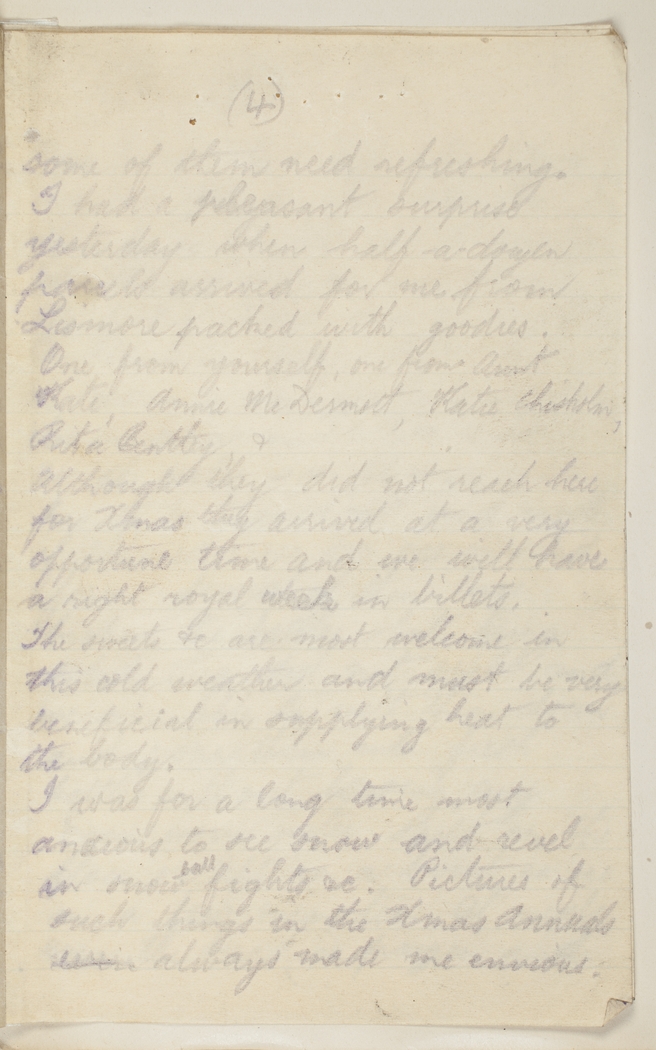 (4)
some of them need refreshing.
I had a pleasant surprise
yesterday when half-a-dozen
parcels arrived for me from
Lismore packed with goodies.
One from yourself, one from Aunt
Kate, Annie McDermott, Katie Chisholm,
Rita Bentley, &
Although they did not reach here
for Xmas they arrived at a very
opportune time and we will have
a right royal week in billets.
The sweets &c are most welcome in
this cold weather and must be very
beneficial in supplying heat to
the body.
I was for a long time most
anxious to see snow and revel
in snow ball fights &c. Pictures of
such things in the Xmas Annuals
always made me envious.